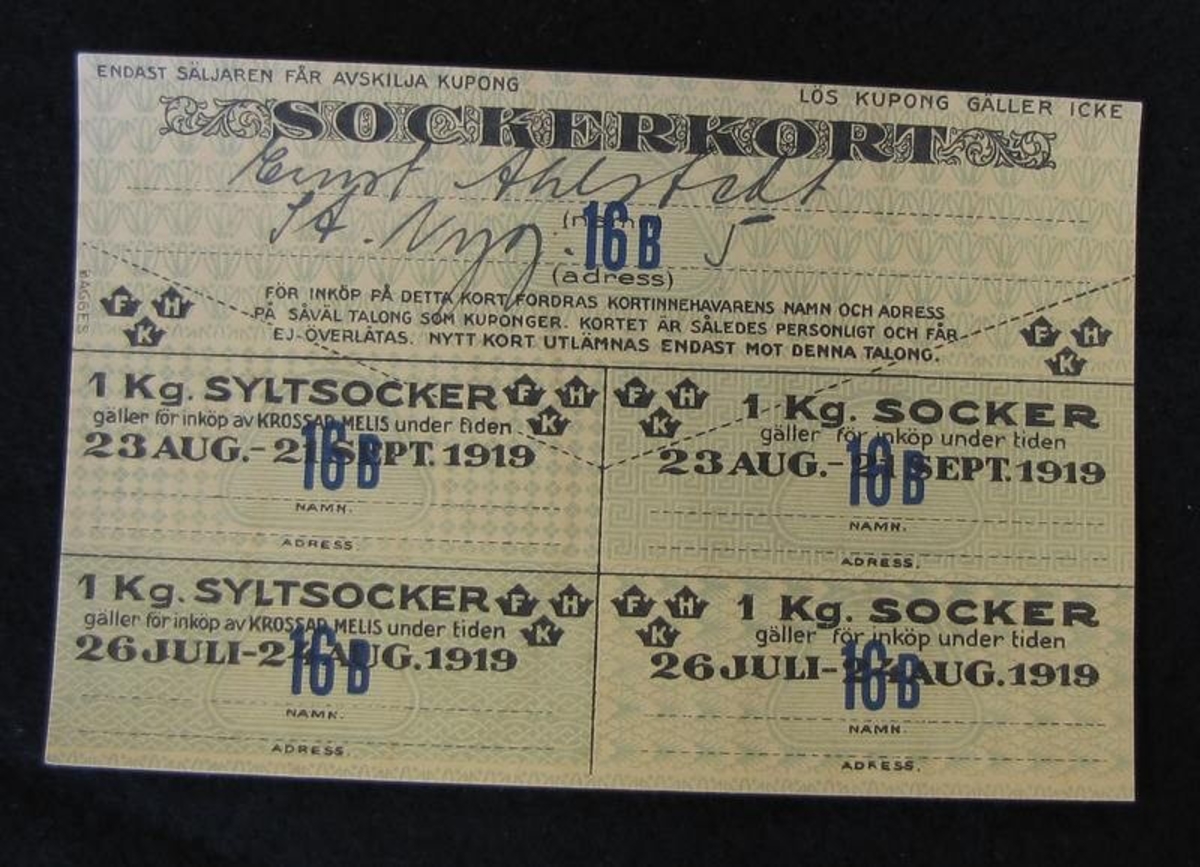 ENDAST SÄLJAREN FÅR AVSKILJA KUPONG
LÖS KUPONG GÄLLER ICKE
SOCKERKORT
Ernst Ahlstedt
(namn)
St. Nyg. 5
16 B
(adress)
BAGGES
F H K
FÖR INKÖP PÅ DETTA KORT FORDRAS KORTINNEHAVARENS NAMN OCH ADRESS
PÅ SÅVÄL TALONG SOM KUPONGER. KORTET ÄR SÅLEDES PERSONLIGT OCH FÅR
EJ ÖVERLÅTAS. NYTT KORT UTLÄMNAS ENDAST MOT DENNA TALONG.
F H K
1 Kg. SYLTSOCKER F H K
gäller för inköp av KROSSAD MELIS under tiden
23 AUG.-21 SEPT. 1919
16 B
NAMN.
ADRESS.
F H K 1 Kg. SOCKER
gäller för inköp under tiden
23 AUG.-21 SEPT. 1919
16 B
NAMN.
ADRESS.
1 Kg. SYLTSOCKER F H K
gäller för inköp av KROSSAD MELIS under tiden
26 JULI-24 AUG. 1919
16 B
NAMN.
ADRESS.
F H K 1 Kg. SOCKER
gäller för inköp under tiden
26 JULI-24 AUG. 1919
16 B
NAMN.
ADRESS.